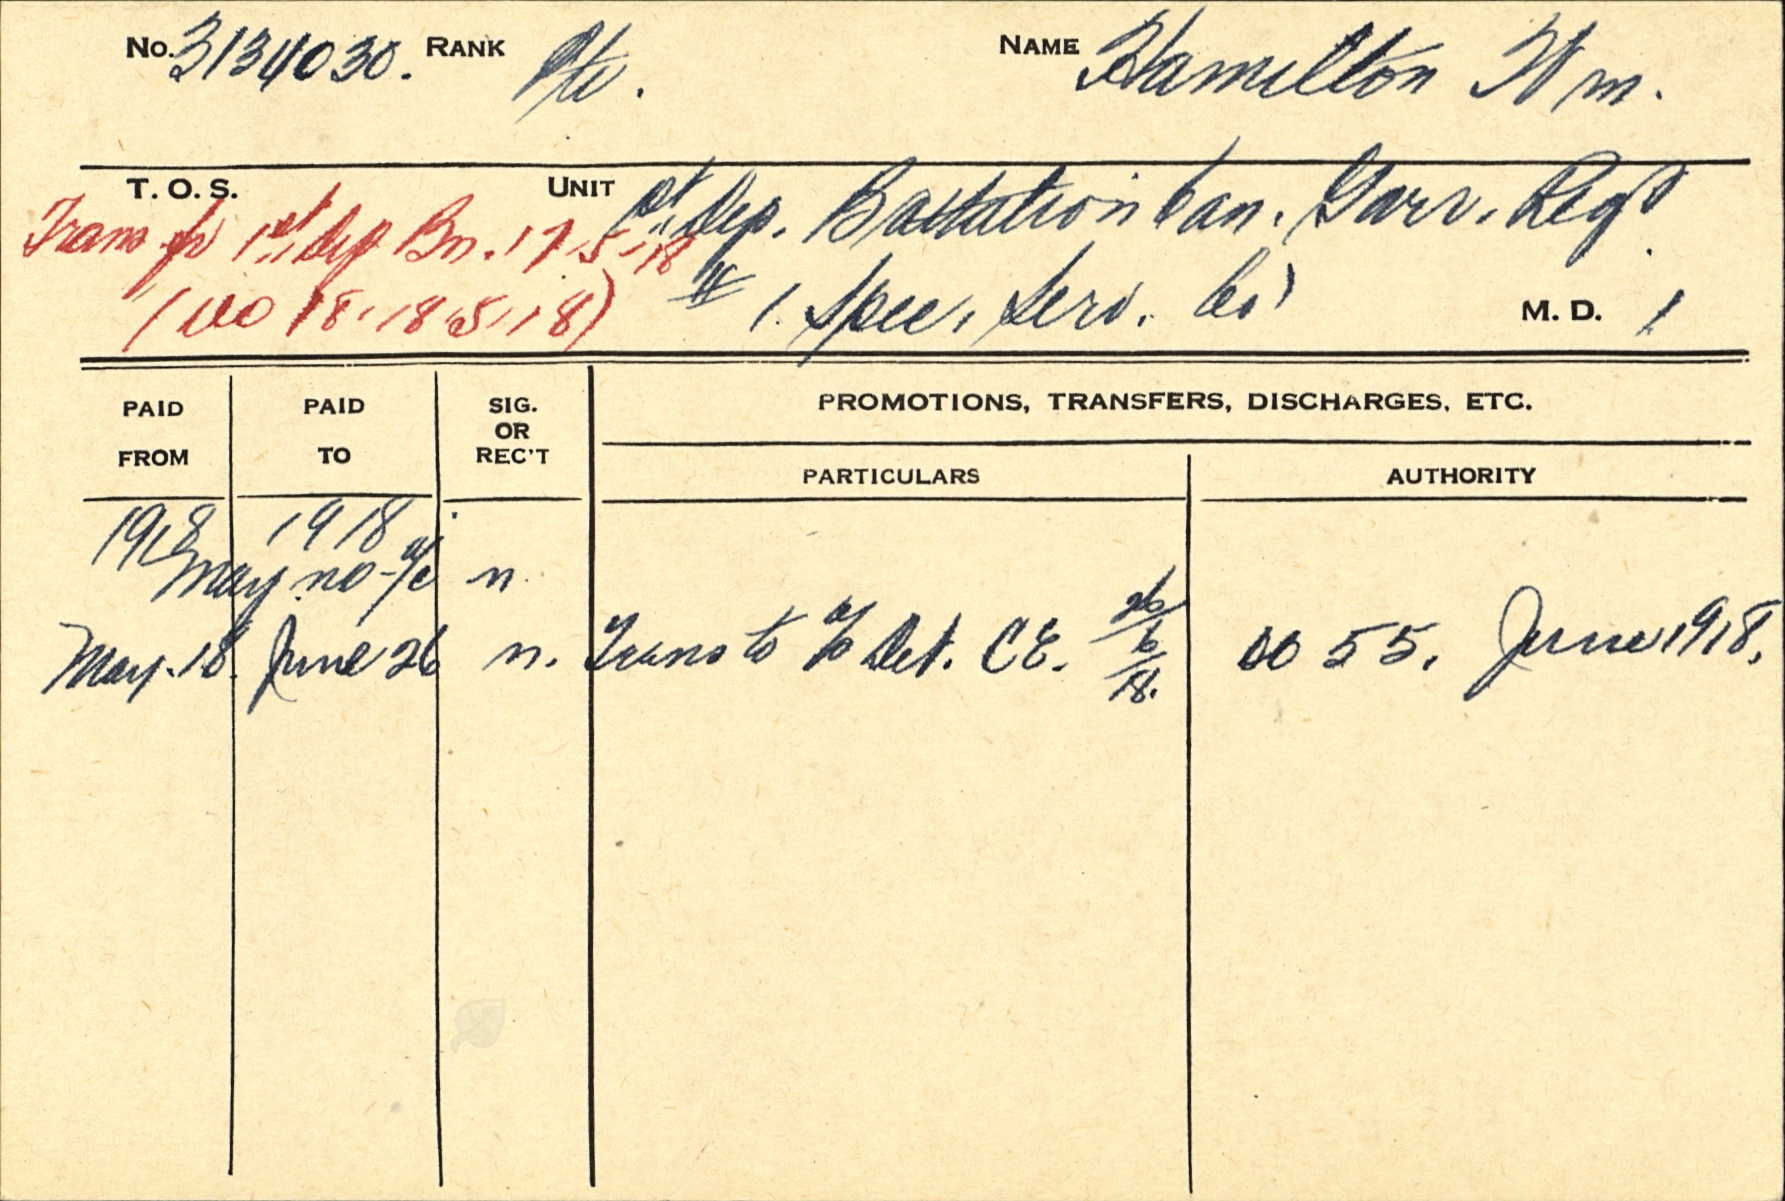 No. 3134030. RANK Pte. NAME Hamilton Wm.
T. O. S. UNIT 1st Dep. Battation Can. Garr. Regt
Trans fr 1st Dep Bn. 17-5-18
(DO 18. 18.5.18) 1. Spec. Serv. Co' M. D. 1
PAID FROM PAID TO SIG. OR REC'T PROMOTIONS, TRANSFERS, DISCHARGES, ETC.
PARTICULARS AUTHORITY
1918 1918
May no a/c n.
May. 18. June 26 n. Trans to Det. C E. 26/6/18. DO 55. June 1918.